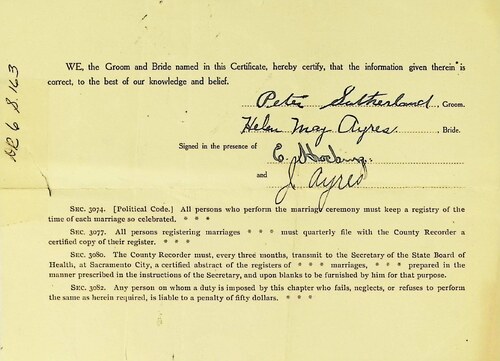 WE, the Groom and Bride named in this Certificate, hereby certify, that the information given therein is
correct, to the best of our knowledge and belief.
Peter Sutherland, Groom.
Helen May Ayres. Bride.
Signed in the presence of
and
J Ayres
SEC. 3074. [Political Code.] All persons who perform the marriage ceremony must keep a registry of the
time of each marriage so celebrated. * * *
SEC. 3077. All persons registering marriages * * * must quarterly file with the County Recorder
a certified copy of their register. * * *
SEC. 3080. The County Recorder must, every three months, transmit to the Secretary of the State Board of
Health, at Sacramento City, a certified abstract of the registers of * * * marriages, * * * prepared in the
manner prescribed in the instructions of the Secretary, and upon blanks to be furnished by him for that purpose.
SEC. 3082. Any person on whom a duty is imposed by this chapter who fails, neglects, or refuses to perform
the same as herein required, is liable to a penalty of fifty dollars. * * *